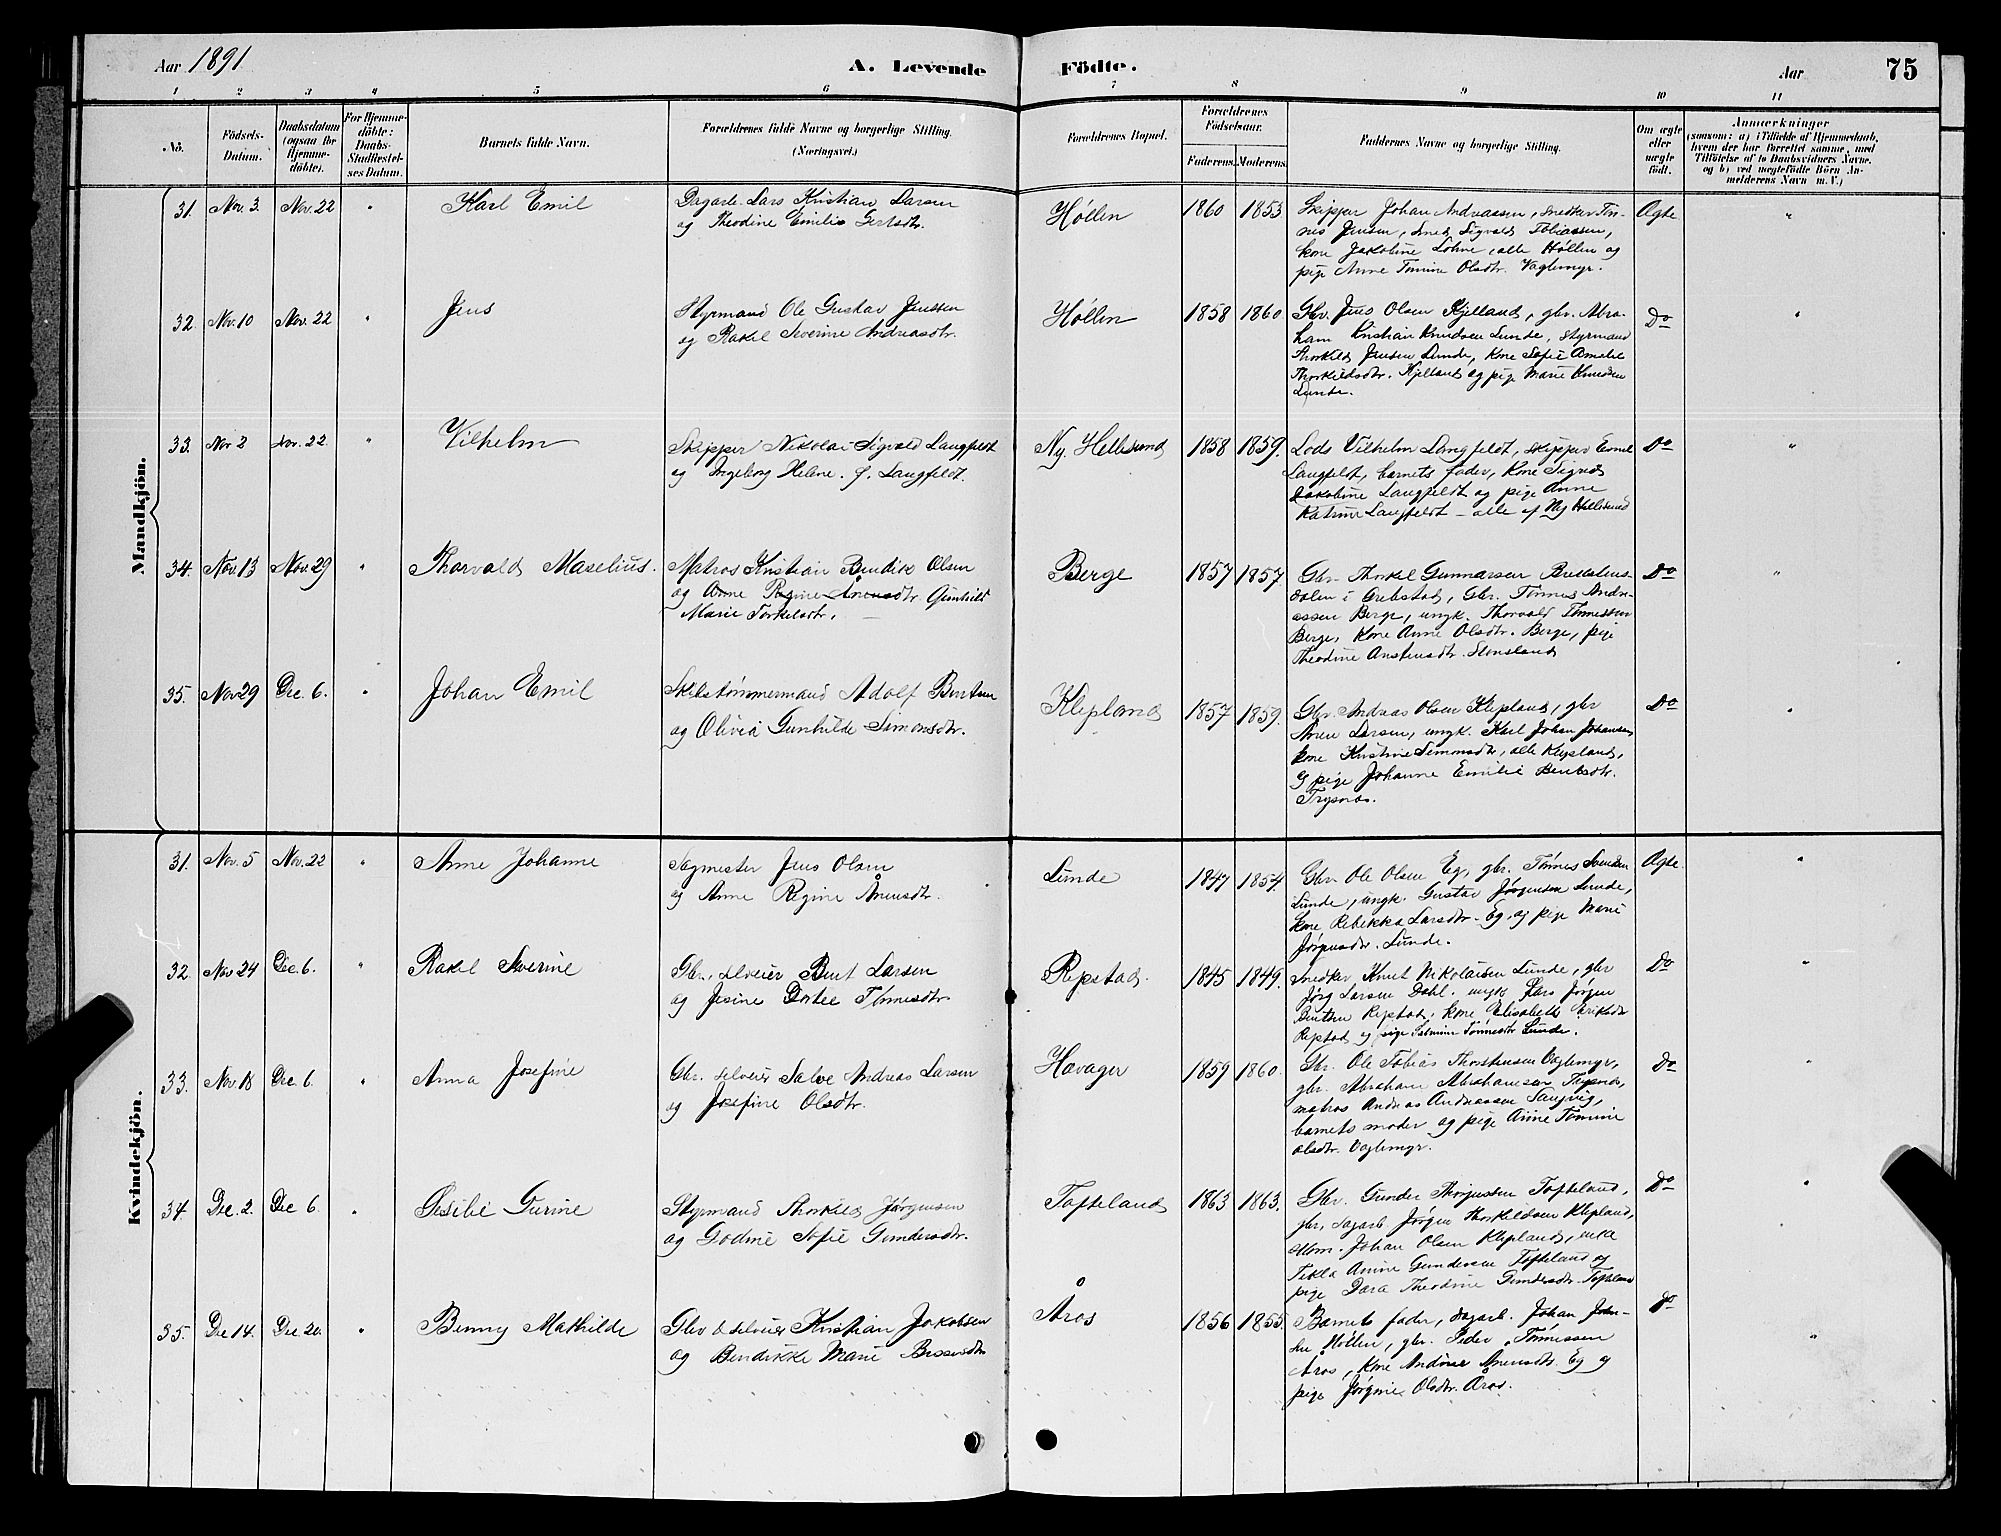 Aar 1891
A. Levende Födte.
Aar
75
1 2 3 4 5 6 7 8 9 10 11
No.
Födsels-
Datum.
Daabsdatum
(ogsaa for
Hjemme-
döbte).
For Hjemme-
döbte:
Daabs-
Stadfæstel-
ses Datum.
Barnets fulde Navn.
Forældrenes fulde Navne og borgerlige Stilling.
(Næringsvei.)
Forældrenes Bopæl.
Forældrenes
Födselsaar.
Faderens. Moderens.
Faddernes Navne og borgerlige Stilling.
Om ægte
eller
uægte
födt.
Anmærkninger
(saasom: a) i Tilfælde af Hjemmedaab,
hvem der har forrettet samme, med
Tilföielse af to Daabsvidners Navne,
og b) ved uægtefödte Börn An-
melderens Navn m. V.)
Mandkjön.
31. Nov. 3. Nov. 22 " Karl Emil
Dagarb. Lars Kristian Larsen
og Theodine Emilie Gertsdtr.
Høllen 1860 1853
Skipper Johan Andreassen, snedker Tøn-
nes Jensen, smed Sigvald Tobiassen,
kone Jakobine Lohne, alle Høllen og
pige Anne Tomine Olsdtr. Vaglemyr.
Ægte "
32. Nov. 10 Nov. 22 " Jens
Styrmand Ole Gustav Jenssen
og Rakel Severine Andreasdtr.
Høllen 1858 1860
Gbr. Jens Olsen Kjelland, gbr. Abra-
ham Kristian Knudsen Lunde, styrmand
Thorkild Jensen Lunde, kone Sofie Amalie
Thorkildsdtr. Kjelland og pige Marie Knudsen
Lunde.
Do "
33. Nov 2 Nov. 22 " Vilhelm
Skipper Nikolai Sigvald Langfeldt
og Ingeborg Helene f. Langfeldt.
Ny Hellesund 1858 1859.
Lods Vilhelm Langfeldt, skipper Emil
Langfeldt, barnets fader, kone Signe
Jakobine Langfeldt og pige Anne
Katrine Langfeldt – alle af Ny Hellesund
Do "
34. Nov. 13 Nov. 29 " Thorvald Maselius.
Matros Kristian Bendik Olsen
og Anne Regine Anensdtr. Gunhild
Marie Torkelsdtr.
Berge 1857 1857
Gbr. Thorkel Gunnarsen
dalen i Grebstad, Gbr. Tønnes Andre-
assen Berge, ungk. Thorvald Tønnessen
Berge, kone Anne Olsdtr. Berge, pige
Theodine Anstensdtr. Stensland
Do "
35. Nov 29 Dec. 6. " Johan Emil
Skibstømmermand Adolf Bentsen
og Olivia Gunhilde Simonsdtr.
Klepland 1857 1859.
Gbr. Andreas Olsen Klepland, gbr
Anen Larsen, ungk. Karl Johan Johansen,
kone Kristine Simonsdtr, alle Klepland,
og pige Johanne Emilie Bentsdtr.
Trysnes.
Do "
Kvindekjön.
31. Nov. 5 Nov. 22 " Anne Johanne
Sagmester Jens Olsen
og Anne Regine Ånensdtr.
Lunde 1847 1854.
Gbr. Ole Olsen Eg, gbr. Tønnes Svendsen
Lunde, ungk. Gustav Jørgensen Lunde,
kone Rebekka Larsdtr. Eg, og pige Marie
Jørgensdtr. Lunde.
Ægte. "
32. Nov 24 Dec. 6. " Rakel Severine
Gbr., selveier Bent Larsen
og Jesine Dortee Tønnesdtr.
Repstad. 1845 1849.
Snedker Knut Nikolaisen Lunde, gbr
Jørg Larsen Dahl. ungk Lars Jørgen
Bentsen Repstad, kone Elisabeth Eriksdtr
Repstad og pige Tønnesdtr Lunde.
Do "
33. Nov. 18 Dec. 6. " Anna Josefine
Gbr. selveier Salve Andreas Larsen
og Josefine Olsdtr.
Havager 1859 1860.
Gbr. Ole Tobias Thorstensen Vaglemyr,
gbr. Abraham Abrahamsen Trysnes,
matros Andreas Andreassen Langvig,
barnets moder og pige Anne Tomine
Olsdtr. Vaglemyr.
Do "
34. Dec. 2. Dec 6. " Gurine
Styrmand Thorkild Jørgensen
og Godine Sofie Gundersdtr.
Tofteland 1863 1863.
Gbr. Gunder Thorgussen Tofteland,
gbr, sagarb. Jørgen Thorkildsen Klepland,
Johan Olsen Klepland, enke
Tekla Amine Gundersen Tofteland og
pige Dara Theodine Gundersdtr. Tofteland
Do "
35. Dec 14. Dec 20. " Benny Mathilde
Gbr & selveier Kristian Jakobsen
og Bendikke Marie
Åros 1856 1855.
Barnets fader, dagarb. Johan
sen Høllen, gbr. Peder Tønnessen
Åros, kone Andrea Anensdtr. Eg og
pige Jørgine Olsdtr. Åros.
Do "